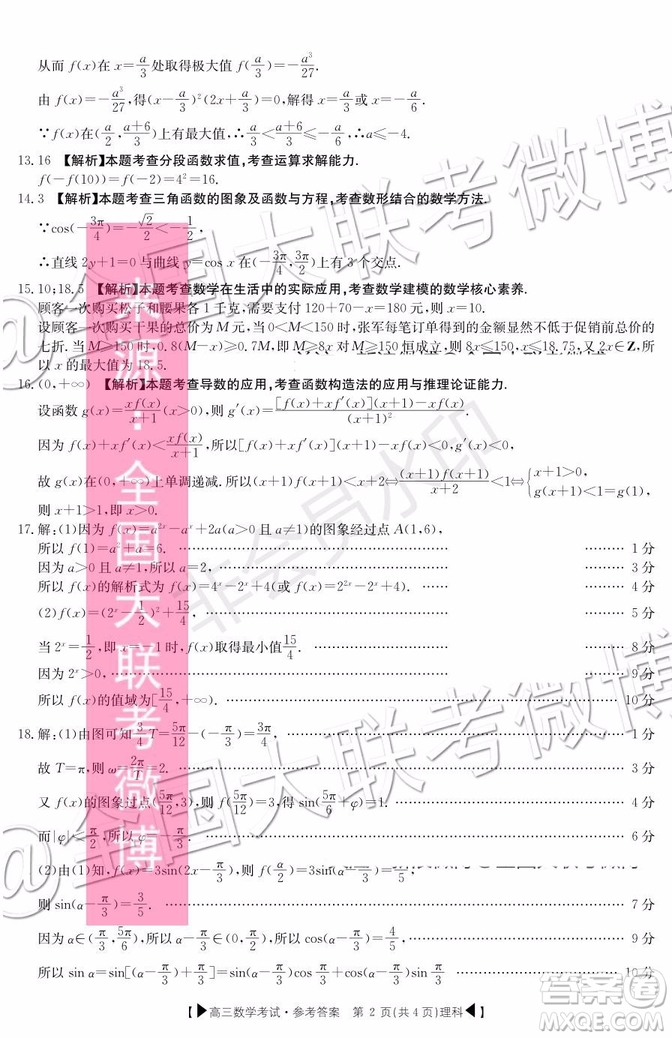 从而 f(x)在 x=a/3 处取得极大值 f(a/3)=-a³/27.
由 f(x)=-a³/27,得(x-a/3)²(2x+a/3)=0,解得 x=a/3 或 x=-a/6.
∵f(x)在(a/2,(a+6)/3)上有最大值,∴a/3<(a+6)/3≤-a/6,∴a≤-4.
13.16 【解析】本题考查分段函数求值,考查运算求解能力.
f(-f(10))=f(-2)=4²=16.
14.3 【解析】本题考查三角函数的图象及函数与方程,考查数形结合的数学方法.
∵cos(-3π/4)=-√2/2<-1/2,
∴直线 2y+1=0 与曲线 y=cos x 在 上有 3 个交点.
15.10;18.5 【解析】本题考查数学在生活中的实际应用,考查数学建模的数学核心素养.
顾客一次购买松子和腰果各 1 千克,需要支付 120+70-x=180 元,则 x=10.
设顾客一次购买干果的总价为 M 元,当 0<M<150 时,张军每笔订单得到的金额显然不低于促销前总价的
七折.当 M≥150 时,0.8(M-x)≥0.7M,即 M≥8x 对 M≥150 恒成立,则 8x≤150,x≤18.75,又 2x∈Z,所
以 x 的最大值为 18.5.
16.(0,+∞) 【解析】本题考查导数的应用,考查函数构造法的应用与推理论证能力.
设函数 g(x)=xf(x)/(x+1)(x>0),则 g′(x)=([f(x)+xf′(x)](x+1)-xf(x))/(x+1)².
因为 f(x)+xf′(x)<xf(x)/(x+1),所以[f(x)+xf′(x)](x+1)-xf(x)<0,
故 g(x)在(0,+∞)上单调递减.所以(x+1)f(x+1)<x+2⇔(x+1)f(x+1)/(x+2)<1⇔{x+1>0, g(x+1)<1=g(1)⇔
x+1>1,即 x>0.
17.解:(1)因为 f(x)=a²ˣ-aˣ+2a(a>0 且 a≠1)的图象经过点 A(1,6),
所以 f(1)=a²+a=6. 1 分
因为 a>0 且 a≠1,所以 a=2, 3 分
所以 f(x)的解析式为 f(x)=4ˣ-2ˣ+4(或 f(x)=2²ˣ-2ˣ+4). 4 分
(2)f(x)=(2ˣ-1/2)²+15/4, 5 分
当 2ˣ=1/2,即 x=-1 时,f(x)取得最小值15/4. 8 分
因为 2ˣ>0, 9 分
所以 f(x)的值域为[15/4,+∞). 10 分
18.解:(1)由图可知 3/4T=5π/12-(-π/3)=3π/4, 1 分
故 T=π,则 ω=2π/T=2. 2 分
又 f(x)的图象过点(5π/12,3),则 f(5π/12)=3,得 sin(5π/6+φ)=1. 4 分
而|φ|<π/2,所以 φ=-π/3, 6 分
(2)由(1)知,f(x)=3sin(2x-π/3),则 f(α/2)=3sin(α-π/3)
则 sin(α-π/3)=3/5. 7 分
因为 α∈(π/3,5π/6),所以 α-π/3∈(0,π/2),所以 cos(α-π/3)=4/5. 9 分
所以 sin α=sin[(α-π/3)+π/3]=sin(α-π/3)cos π/3+cos(α-π/3)sin π/3 10 分
【高三数学考试·参考答案 第 2 页(共 4 页)理科】
来源:全国大联考微博
@全国大联考微博
非会员水印